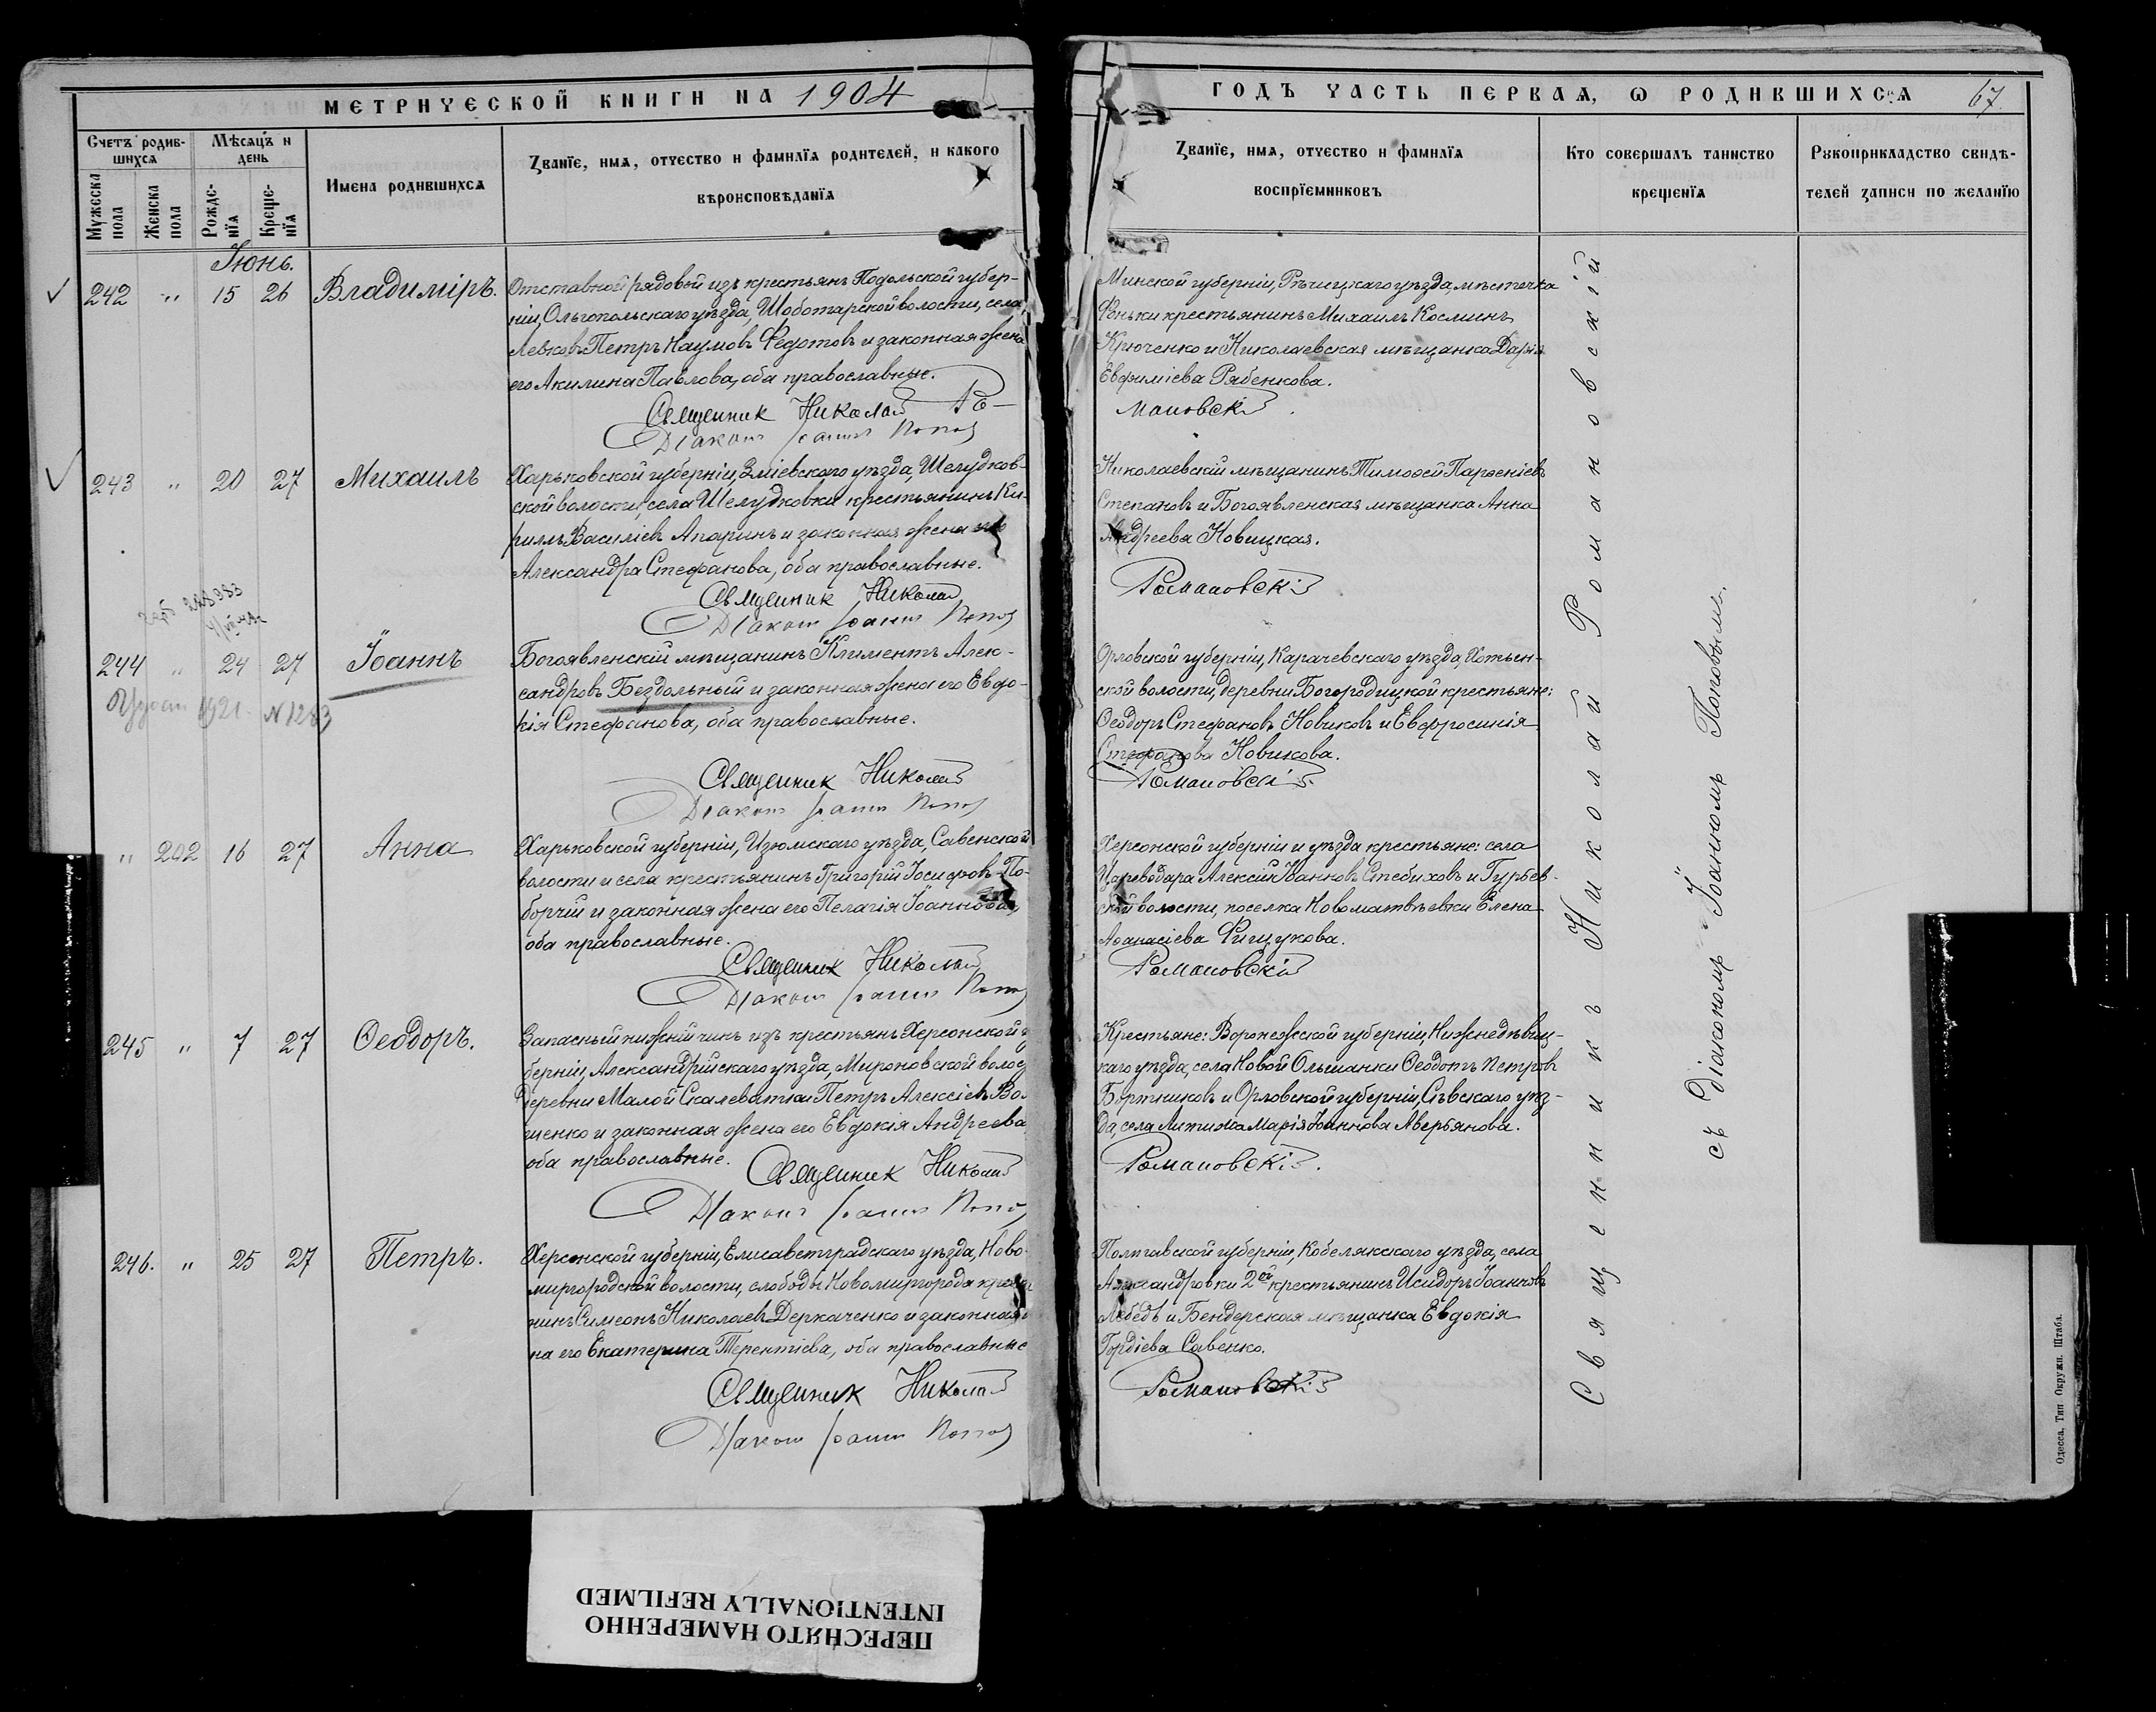 МЕТРИЧЕСКОЙ КНИГИ НА 1904
Счетъ родив-
шихся
Мѣсяцъ и
день
Мужеска
пола
Женска
пола
Рожде-
нїя
Креще-
нїя
Имена родившихся
Званїе, имя, отчество и фамилїя родителей, и какого
вѣроисповѣданїя
Іюнь.
242 " 15 26 Владиміръ.
Отставной рядовой изъ крестьянъ Подольской губер-
ніи, Ольгопольскаго уѣзда, Шоботарской волости, села
Левковъ Петръ Наумовъ Федотовъ и законная жена
его Акилина Павлова, оба православные.
Священник Николай Ро-
Діаконъ Іоаннъ Попов
243 " 20 27 Михаилъ
Харьковской губерніи, Зміевскаго уѣзда, Шелудков-
ской волости, села Шелудковки крестьянинъ Ки-
риллъ Василіевъ Апаринъ и законная жена его
Александра Стефанова, оба православные.
Священник Николай
Діаконъ Іоаннъ Попов
244 " 24 27 Іоаннъ
1921 N 1283
Богоявленскій мѣщанинъ Климентъ Алек-
сандровъ Бездольный и законная жена его Евдо-
кія Стефанова, оба православные.
Священник Николай
Діаконъ Іоаннъ Попов
" 202 16 27 Анна
Харьковской губерніи, Изюмскаго уѣзда, Савенской
волости и села крестьянинъ Григорій Іосифовъ По-
борчій и законная жена его Пелагія Іоаннова,
оба православные.
Священник Николай
Діаконъ Іоаннъ Попов
245 " 7 27 Ѳеодоръ.
Запасный нижній чинъ изъ крестьянъ Херсонской гу
берніи, Александрійскаго уѣзда, Мироновской волос
деревни Малой Скалеватки Петръ Алексіевъ Во
шенко и законная жена его Евдокія Андреева
оба православные.
Священник Николай
Діаконъ Іоаннъ Попов
246. " 25 27 Петръ.
Херсонской губерніи, Елисаветградскаго уѣзда, Ново-
миргородской волости, слободы Новомиргорода кресть
нинъ Симеонъ Николаевъ Деркаченко и законная
на его Екатерина Терентіева, оба православные
Священник Николай
Діаконъ Іоаннъ Попов
ГОДЪ ЧАСТЬ ПЕРВАЯ, Ѡ РОДИВШИХСЯ 67.
Званїе, имя, отчество и фамилїя
воспрїемниковъ
Кто совершалъ таинство
крещенїя
Рукоприкладство свидѣ-
телей записи по желанїю
Минской губерніи, Рѣчицкаго уѣзда, мѣстечка
крестьянинъ Михаилъ Косминъ
Крюченко и Николаевская мѣщанка Дарія
Евфиміева Рябенкова.
мановскій
Николаевскій мѣщанинъ Тимоѳей Парѳеніевъ
Степановъ и Богоявленская мѣщанка Анна
Андреева Новицкая.
Романовскій
Орловской губерніи, Карачевскаго уѣзда, Хотьен-
ской волости, деревни Богородицкой крестьяне:
Ѳеодоръ Стефановъ Новиковъ и Евфросинія
Стефанова Новикова.
Романовскій
Херсонской губерніи и уѣзда крестьяне: села
Цареводара Алексій Іоанновъ Стебиховъ и Гурьев-
ской волости, поселка Новоматвѣевки Елена
Аѳанасіева Фищукова.
Романовскій
Крестьяне: Воронежской губерніи, Нижнедѣвиц-
каго уѣзда, села Новой Ольшанки Ѳеодотъ Петровъ
Бортниковъ и Орловской губерніи, Сѣвскаго уѣз-
да, села Литижа Марія Іоаннова Аверьянова.
Романовскій.
Полтавской губерніи, Кобелякскаго уѣзда, села
Александровки 2ой крестьянинъ Исидоръ Іоанновъ
Лебедь и Бендерская мѣщанка Евдокія
Гордіева Савенко.
Романовскій
Священникъ Николай Романовскій
съ діакономъ Іоанномъ Поповымъ.
Одесса. Тип. Окружн. Штаба.
ПЕРЕСНЯТО НАМЕРЕННО
INTENTIONALLY REFILMED